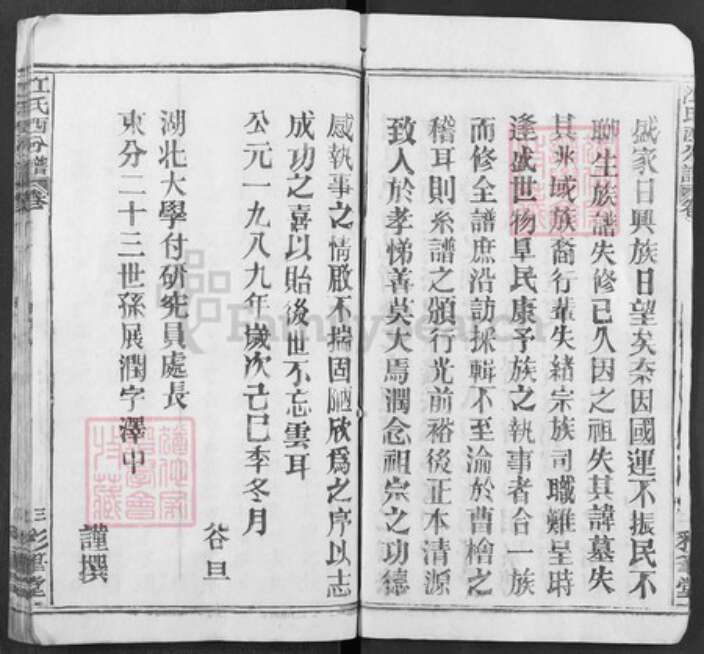 盛家日興族日望矣奈因國運不振民不
聊生族譜失修已久因之祖失其諱墓失
其兆域族裔行輩失緒宗族司職難呈時
逢盛世物阜民康予族之執事者合一族
而修全譜庶沿訪採輯不至淪於曹檜之
稽耳則糸譜之頒行光前裕後正本清源
致人於孝悌善莫大焉潤念祖宗之功德
感執事之情殷不揣固陋欣爲之序以志
成功之喜以貽後世不忘雲耳
公元一九八九年歲次己巳季冬月
谷旦
湖北大學付研究員處長
東分二十三世孫展潤字澤中
謹撰
江氏西分譜
卷
三
FamilySearch